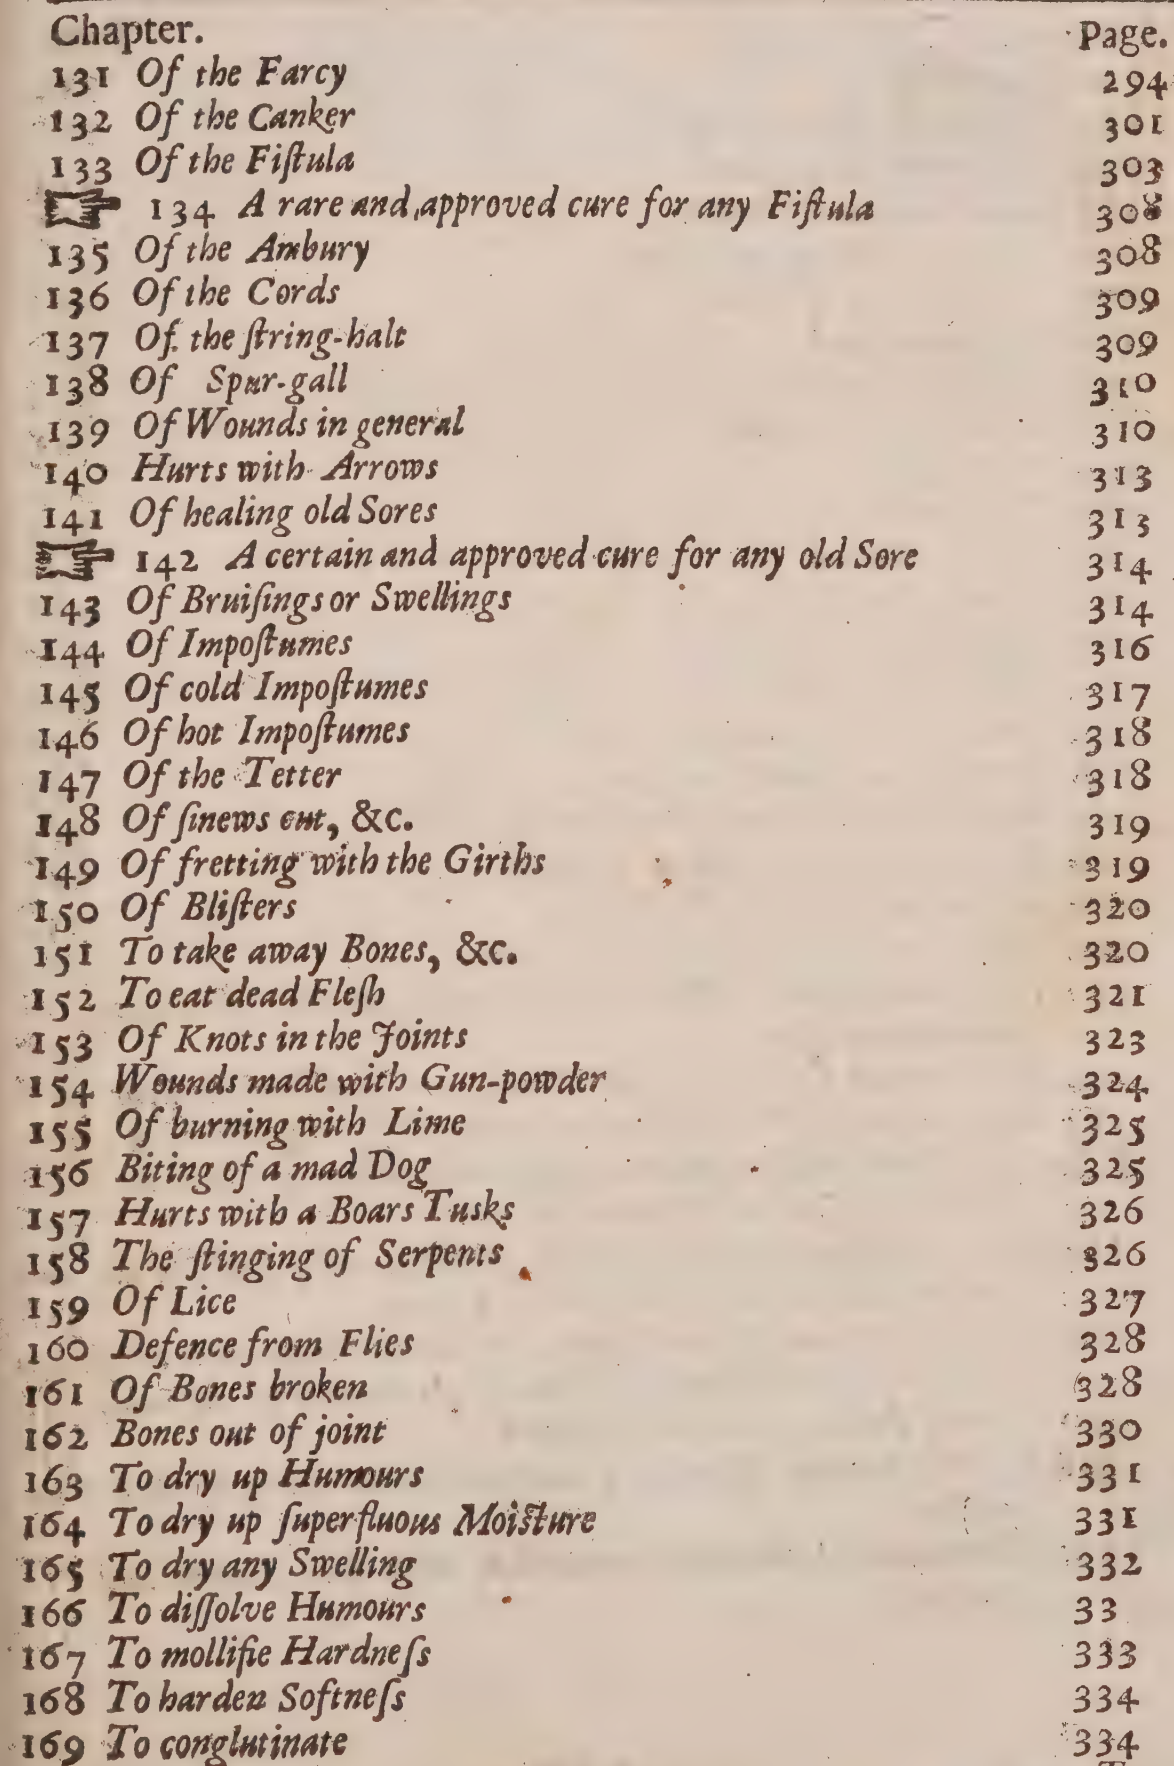 Chapter. Page.
131 Of the Farcy 294
132 Of the Canker 301
133 Of the Fiſtula 303
☞ 134 A rare and approved cure for any Fiſtula 308
135 Of the Ambury 308
136 Of the Cords 309
137 Of the ſtring-halt 309
138 Of Spur-gall 310
139 Of Wounds in general 310
140 Hurts with Arrows 313
141 Of healing old Sores 313
☞ 142 A certain and approved cure for any old Sore 314
143 Of Bruiſings or Swellings 314
144 Of Impoſtumes 316
145 Of cold Impoſtumes 317
146 Of hot Impoſtumes 318
147 Of the Tetter 318
148 Of ſinews cut, &c. 319
149 Of fretting with the Girths 319
150 Of Bliſters 320
151 To take away Bones, &c. 320
152 To eat dead Fleſh 321
153 Of Knots in the Joints 323
154 Wounds made with Gun-powder 324
155 Of burning with Lime 325
156 Biting of a mad Dog 325
157 Hurts with a Boars Tusks 326
158 The ſtinging of Serpents 326
159 Of Lice 327
160 Defence from Flies 328
161 Of Bones broken 328
162 Bones out of joint 330
163 To dry up Humours 331
164 To dry up ſuperfluous Moiſture 331
165 To dry any Swelling 332
166 To diſſolve Humours 33
167 To mollifie Hardneſs 333
168 To harden Softneſs 334
169 To conglutinate 334